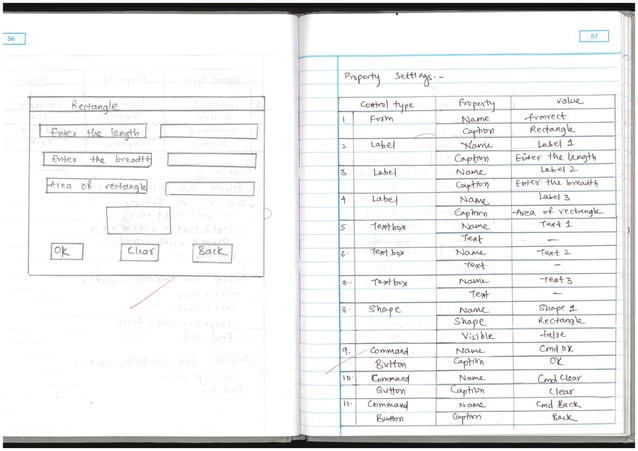 56
Rectangle
Enter the length
Enter the breadth
Area of rectangle
OK Clear Back
57
Property Settings:-
Control type Property Value
1 Form Name frmrect
Caption Rectangle
2 Label Name Label 1
Caption Enter the length
3 Label Name Label 2
Caption Enter the breadth
4 Label Name Label 3
Caption Area of rectangle
5 Textbox Name Text 1
Text —
6. Textbox Name Text 2
Text —
7. Textbox Name Text 3
Text —
8. Shape Name Shape 1
Shape Rectangle
Visible false
9. Command Name Cmd OK
Button Caption OK
10. Command Name Cmd Clear
Button Caption Clear
11. Command Name Cmd Back
Button Caption Back